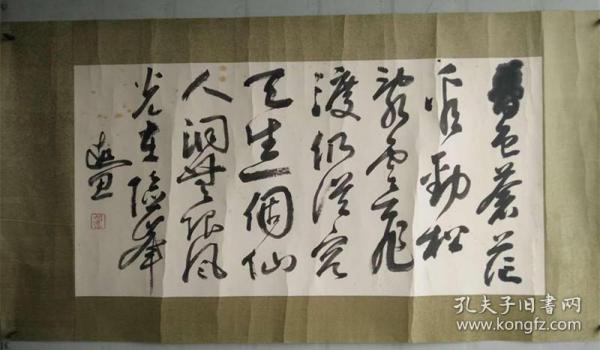 暮色苍茫
看劲松
乱云飞
渡仍従容
天生一個仙
人洞無限風
光在险峰
孔夫子旧书网
www.kongfz.com